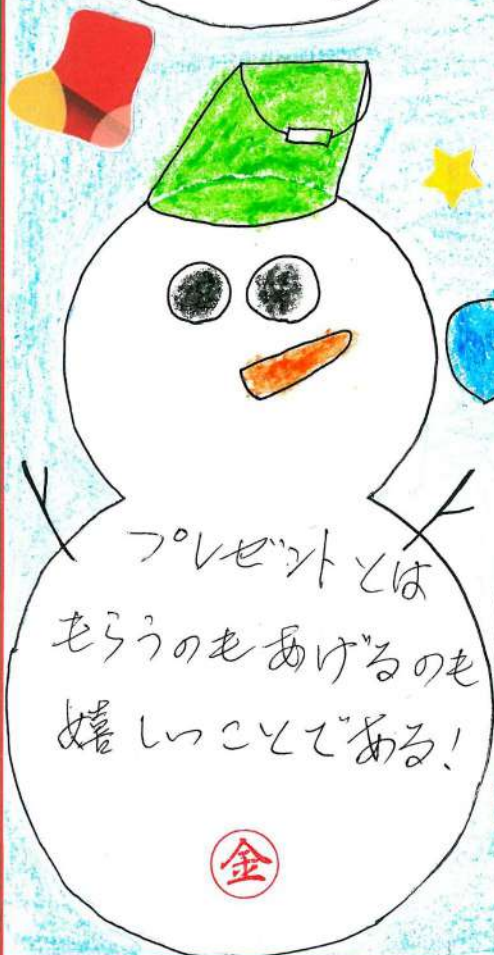 プレゼントとは
もらうのもあげるのも
嬉しいことである!
金